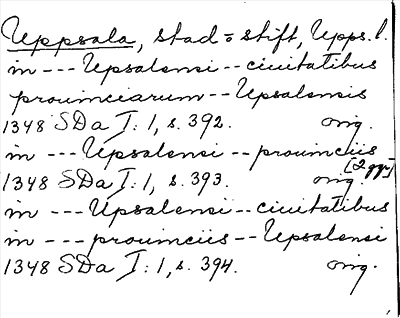 Uppsala, stad o stift, Upps. l.
in --- Upsalensi -- ciuitatibus
prouinciarum -- Upsalensis
1348 SDa I: 1, s. 392. orig.
in --- Upsalensi -- prouinciis
[2 ggr]
1348 SDa I: 1, s. 393. orig.
in --- Upsalensi -- ciuitatibus
in --- prouinciis -- Upsalensi
1348 SDa I: 1, s. 394. orig.